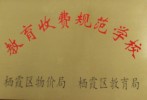 教育收费规范学校
栖霞区物价局 栖霞区教育局